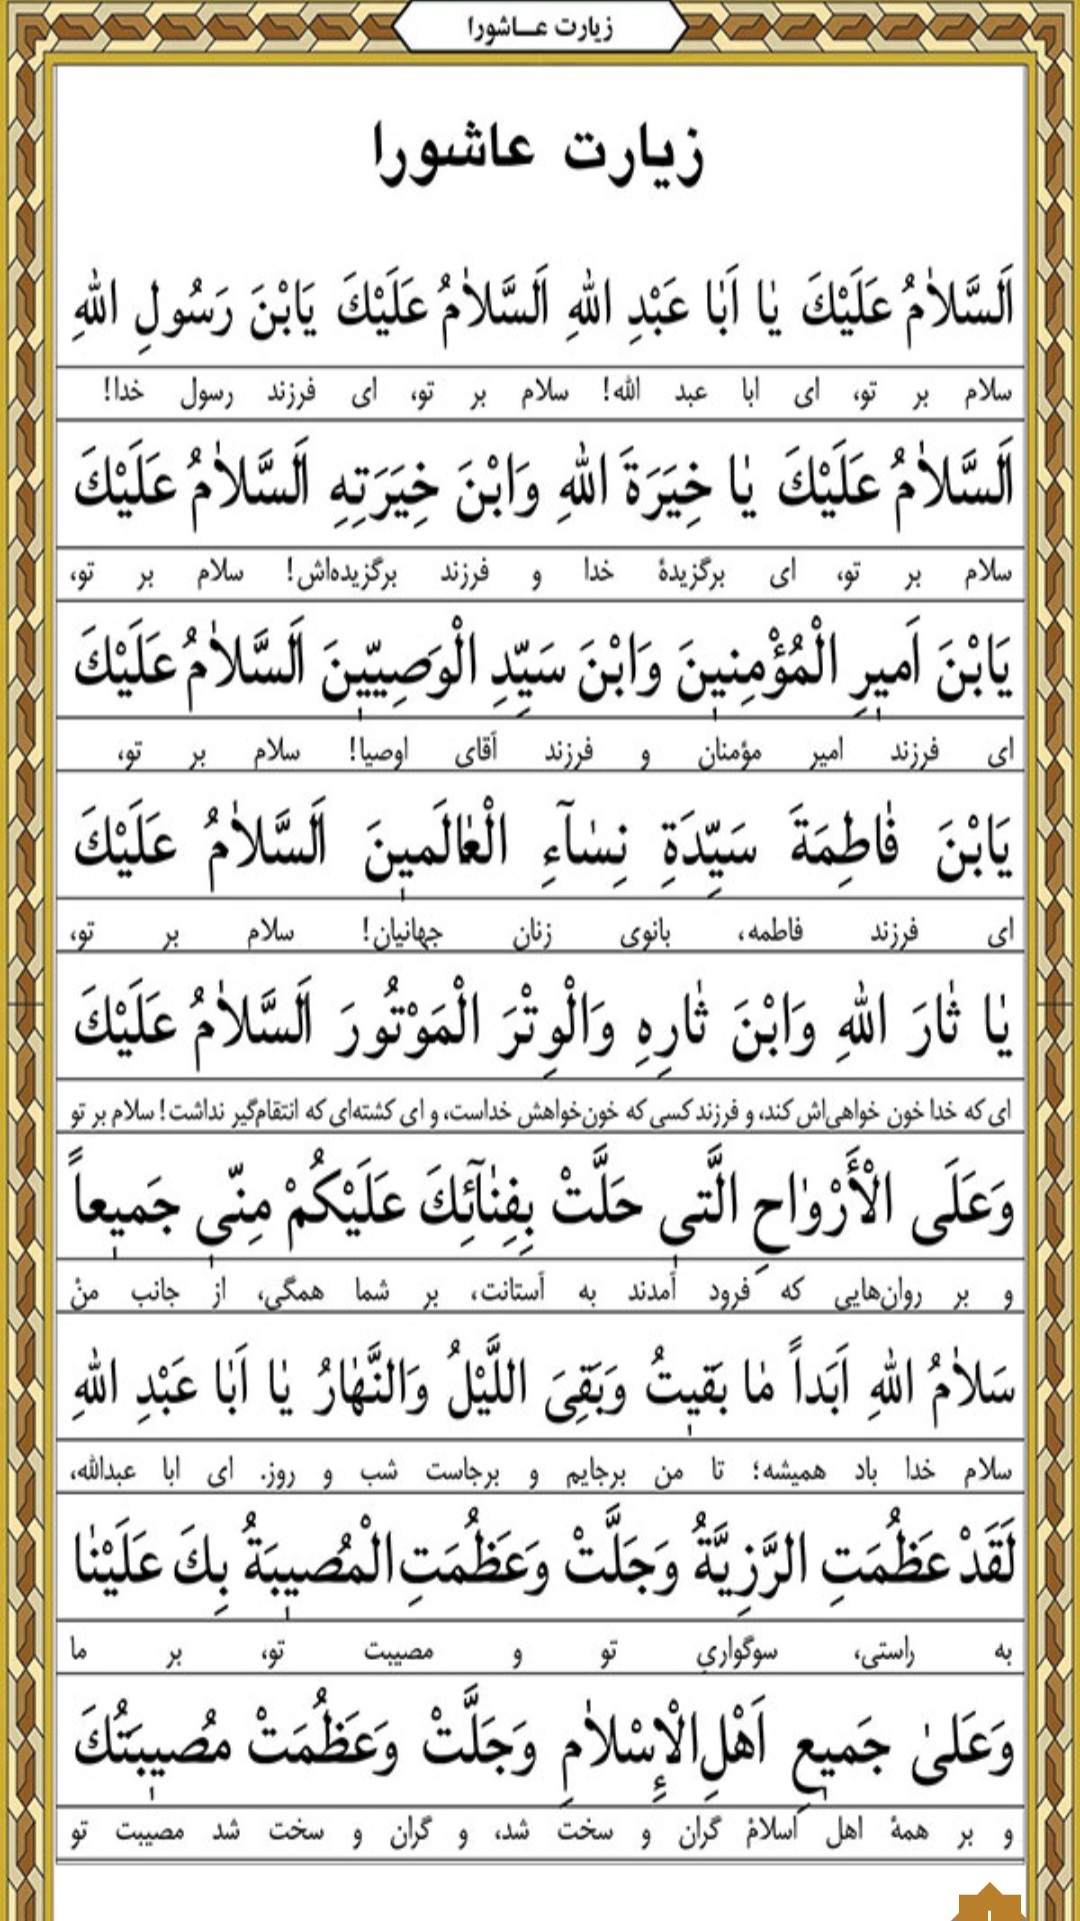 زیارت عـــاشورا
زیارت عاشورا
اَلسَّلاٰمُ عَلَيْكَ يٰا اَبٰا عَبْدِ اللهِ اَلسَّلاٰمُ عَلَيْكَ يَابْنَ رَسُولِ اللهِ
سلام بر تو، ای ابا عبد الله! سلام بر تو، ای فرزند رسول خدا!
اَلسَّلاٰمُ عَلَيْكَ يٰا خِيَرَةَ اللهِ وَابْنَ خِيَرَتِهِ اَلسَّلاٰمُ عَلَيْكَ
سلام بر تو، ای برگزیدۀ خدا و فرزند برگزیده‌اش! سلام بر تو،
يَابْنَ اَميٖرِ الْمُؤْمِنيٖنَ وَابْنَ سَيِّدِ الْوَصِيّيٖنَ اَلسَّلاٰمُ عَلَيْكَ
ای فرزند امیر مؤمنان و فرزند آقای اوصیا! سلام بر تو،
يَابْنَ فٰاطِمَةَ سَيِّدَةِ نِسٰآءِ الْعٰالَميٖنَ اَلسَّلاٰمُ عَلَيْكَ
ای فرزند فاطمه، بانوی زنان جهانیان! سلام بر تو،
يٰا ثٰارَ اللهِ وَابْنَ ثٰارِهِ وَالْوِتْرَ الْمَوْتُورَ اَلسَّلاٰمُ عَلَيْكَ
ای که خدا خون خواهی‌اش کند، و فرزند کسی که خون‌خواهش خداست، و ای کشته‌ای که انتقام‌گیر نداشت! سلام بر تو
وَعَلَى الْأَرْوٰاحِ الَّتيٖ حَلَّتْ بِفِنٰآئِكَ عَلَيْكُمْ مِنّيٖ جَميٖعاً
و بر روان‌هایی که فرود آمدند به آستانت، بر شما همگی، از جانب من
سَلاٰمُ اللهِ اَبَداً مٰا بَقيٖتُ وَبَقِىَ اللَّيْلُ وَالنَّهٰارُ يٰا اَبٰا عَبْدِ اللهِ
سلام خدا باد همیشه؛ تا من برجایم و برجاست شب و روز. ای ابا عبدالله،
لَقَدْ عَظُمَتِ الرَّزِيَّةُ وَجَلَّتْ وَعَظُمَتِ الْمُصيٖبَةُ بِكَ عَلَيْنٰا
به راستی، سوگواریِ تو و مصیبت تو، بر ما
وَعَلىٰ جَميٖعِ اَهْلِ الْإِسْلاٰمِ وَجَلَّتْ وَعَظُمَتْ مُصيٖبَتُكَ
و بر همۀ اهل اسلام گران و سخت شد، و گران و سخت شد مصیبت تو